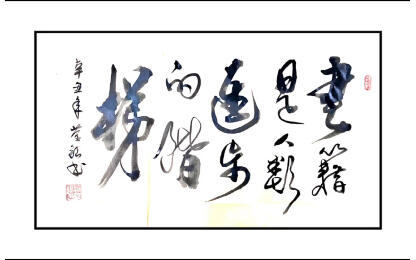 书籍
是人类
进步
的阶
梯
辛丑年 莹